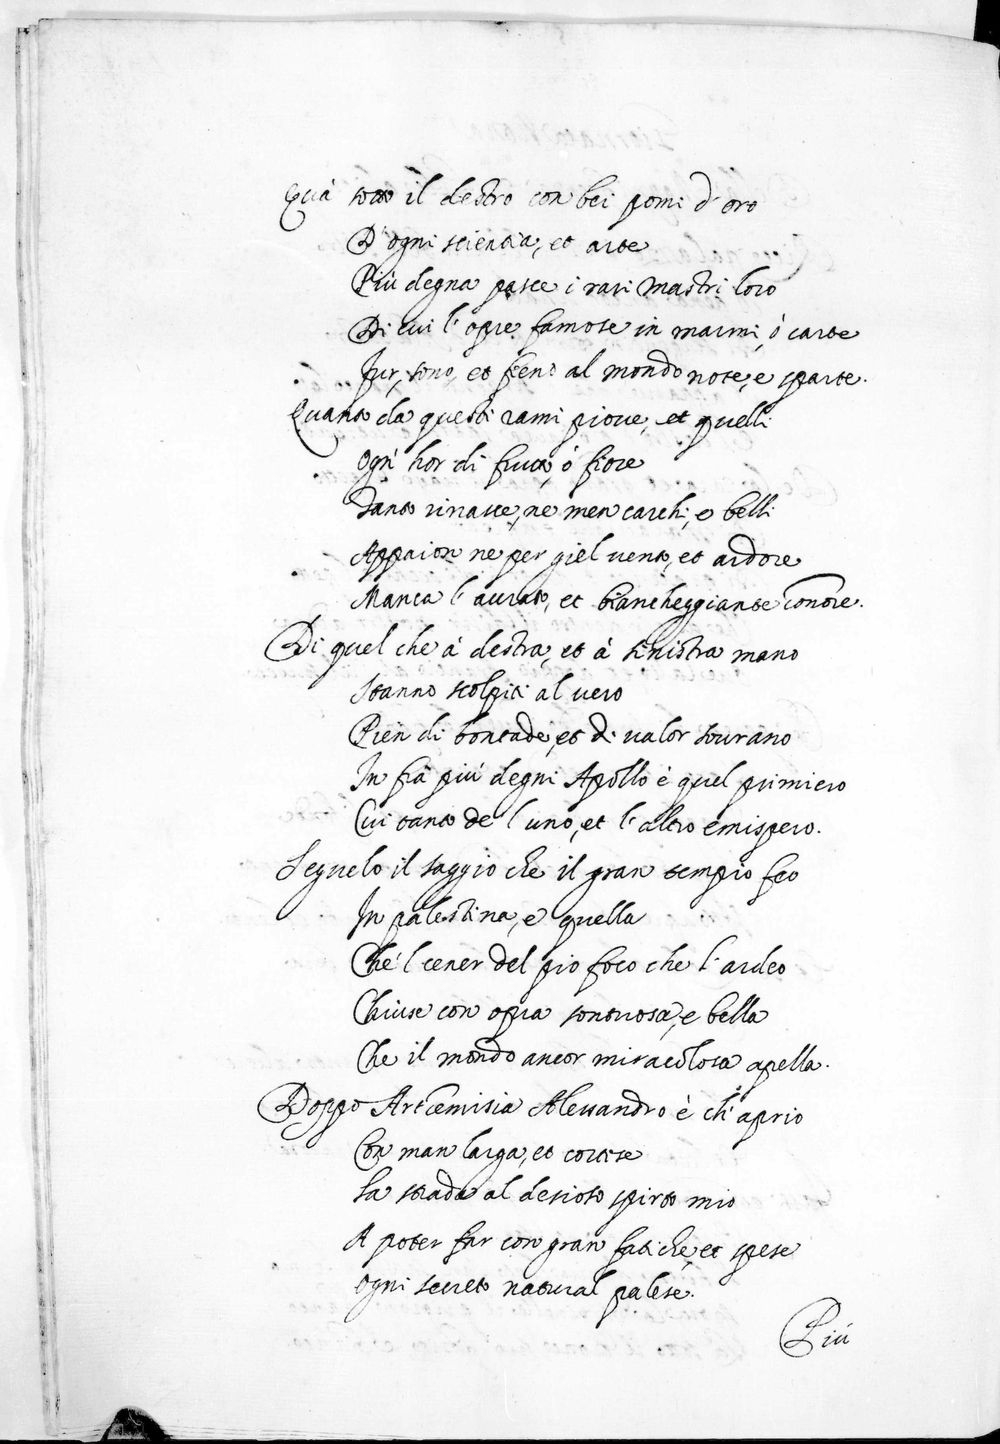 Quà sotto il destro con bei pomi d'oro
D'ogni scientia, et arte
Più degna pasce i rari Mastri loro
Di cui l'opre famose in marmi, ò carte
Fur, sono, et fieno al mondo note, e sparte.
Quanto da questi rami piove, et quelli
Ogn'hor di frutti, ó fiore
Tanto rinasce, ne men carchi, e belli
Appaion ne per giel vento, et ardore
Manca l'aurato, et biancheggiante honore.
Di quel che à destra, et à sinistra mano
Stanno scolpiti al vero
Pien di bontade, et di valor sourano
In frà più degni Apollo è quel primiero
Cui canto de l'uno, et l'altro emispero.
Seguelo il saggio che il gran tempio feo
In palestina, e quella
Che'l cener del pio foco che l'ardeo
Chiuse con opra sontuosa, e bella
Che il mondo ancor miracolosa apella.
Doppo Artemisia Alessandro è ch'aprio
Con man larga, et cortese
La strada al desioso spirto mio
A poter far con gran fatiche, et spese
Ogni secreto natural palese.
Più